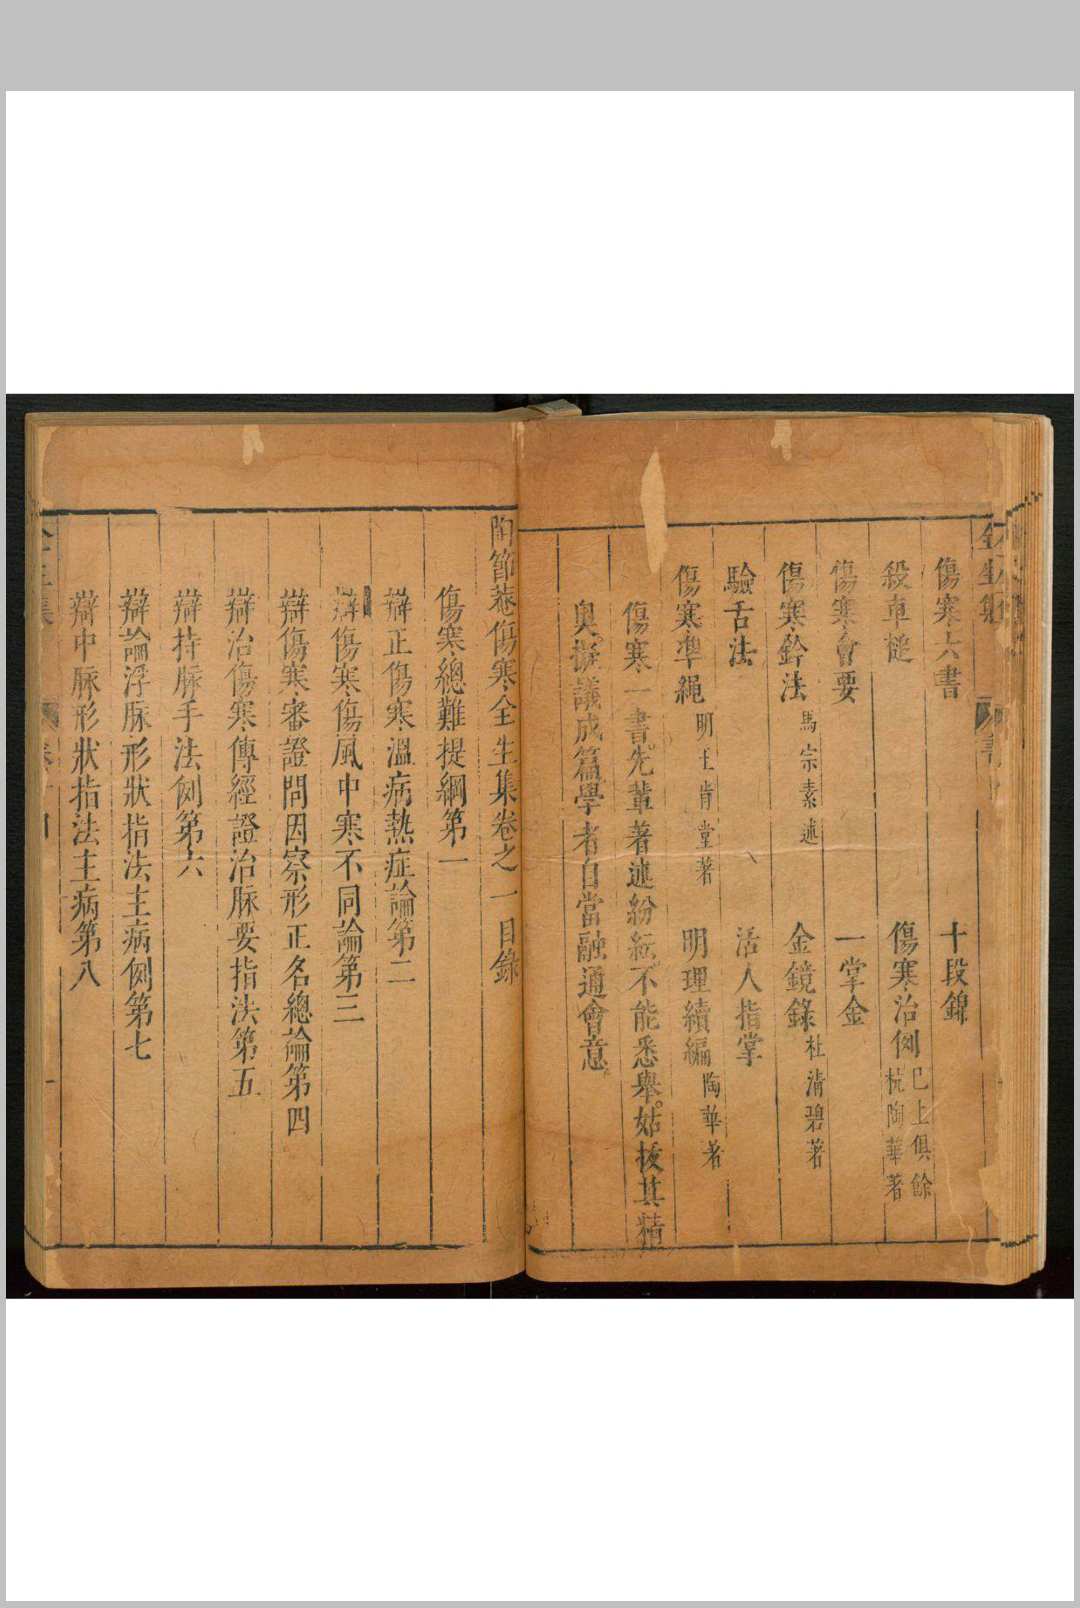 全生集
傷寒六書 十段錦
殺車槌 傷寒治例 巳上俱餘杭陶華著
傷寒會要 一掌金
傷寒鈐法 馬宗素述 金鏡錄 杜清碧著
驗舌法 活人指掌
傷寒準繩 明王肯堂著 明理續編 陶華著
傷寒一書。先輩著述紛紜。不能悉舉。姑拔其精
奧。擬議成篇。學者自當融通會意。
陶節菴傷寒全生集卷之一目錄
傷寒總難提綱第一
辯正傷寒溫病熱症論第二
辯傷寒傷風中寒不同論第三
辯傷寒審證問因察形正名總論第四
辯治傷寒傳經證治脉要指法第五
辯持脉手法例第六
辯論浮脉形狀指法主病例第七
辯中脉形狀指法主病第八